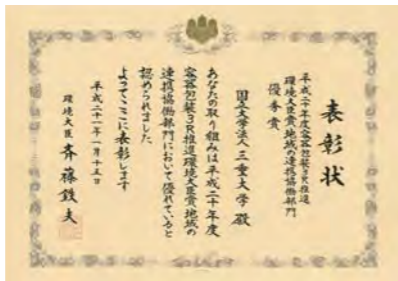 表彰状
平成二十年度容器包装3R推進
環境大臣賞地域の連携協働部門
優秀賞
国立大学法人三重大学殿
あなたの取り組みは平成二十年度
容器包装3R推進環境大臣賞地域の
連携協働部門において優れていると
認められました
よってここに表彰します
平成二十一年一月十五日
環境大臣 斉藤鉄夫